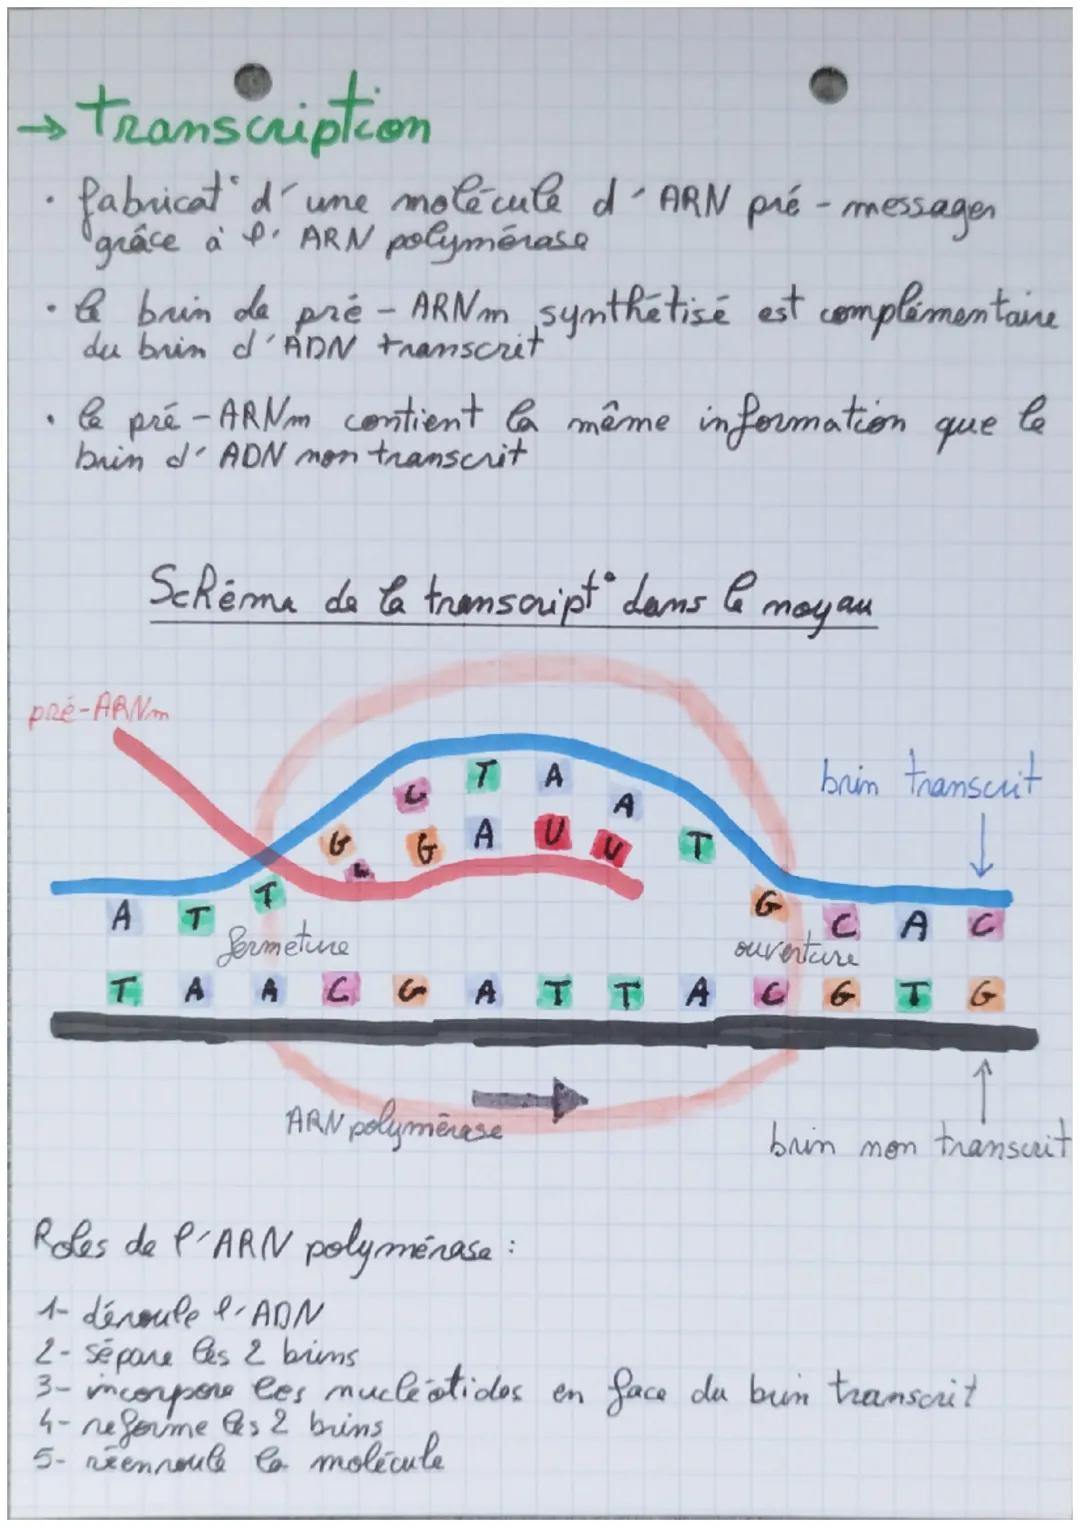 → Transcription
• fabricat° d'une molécule d'ARN pré-messager
grâce à l'ARN polymérase
• le brin de pré-ARNm synthétisé est complémentaire
du brin d'ADN transcrit
• le pré-ARNm contient la même information que le
brin d'ADN non transcrit
Schéma de la transcript° dans le noyau
pré-ARNm
brin transcrit
T A
C A
G G A U U T
C
A T T G C A C
fermeture ouverture
T A A C G A T T A C G T G
ARN polymérase
brin non transcrit
Roles de l'ARN polymérase :
1- déroule l'ADN
2- sépare les 2 brins
3- incorpore les nucléotides en face du brin transcrit
4- reforme les 2 brins
5- réenroule la molécule